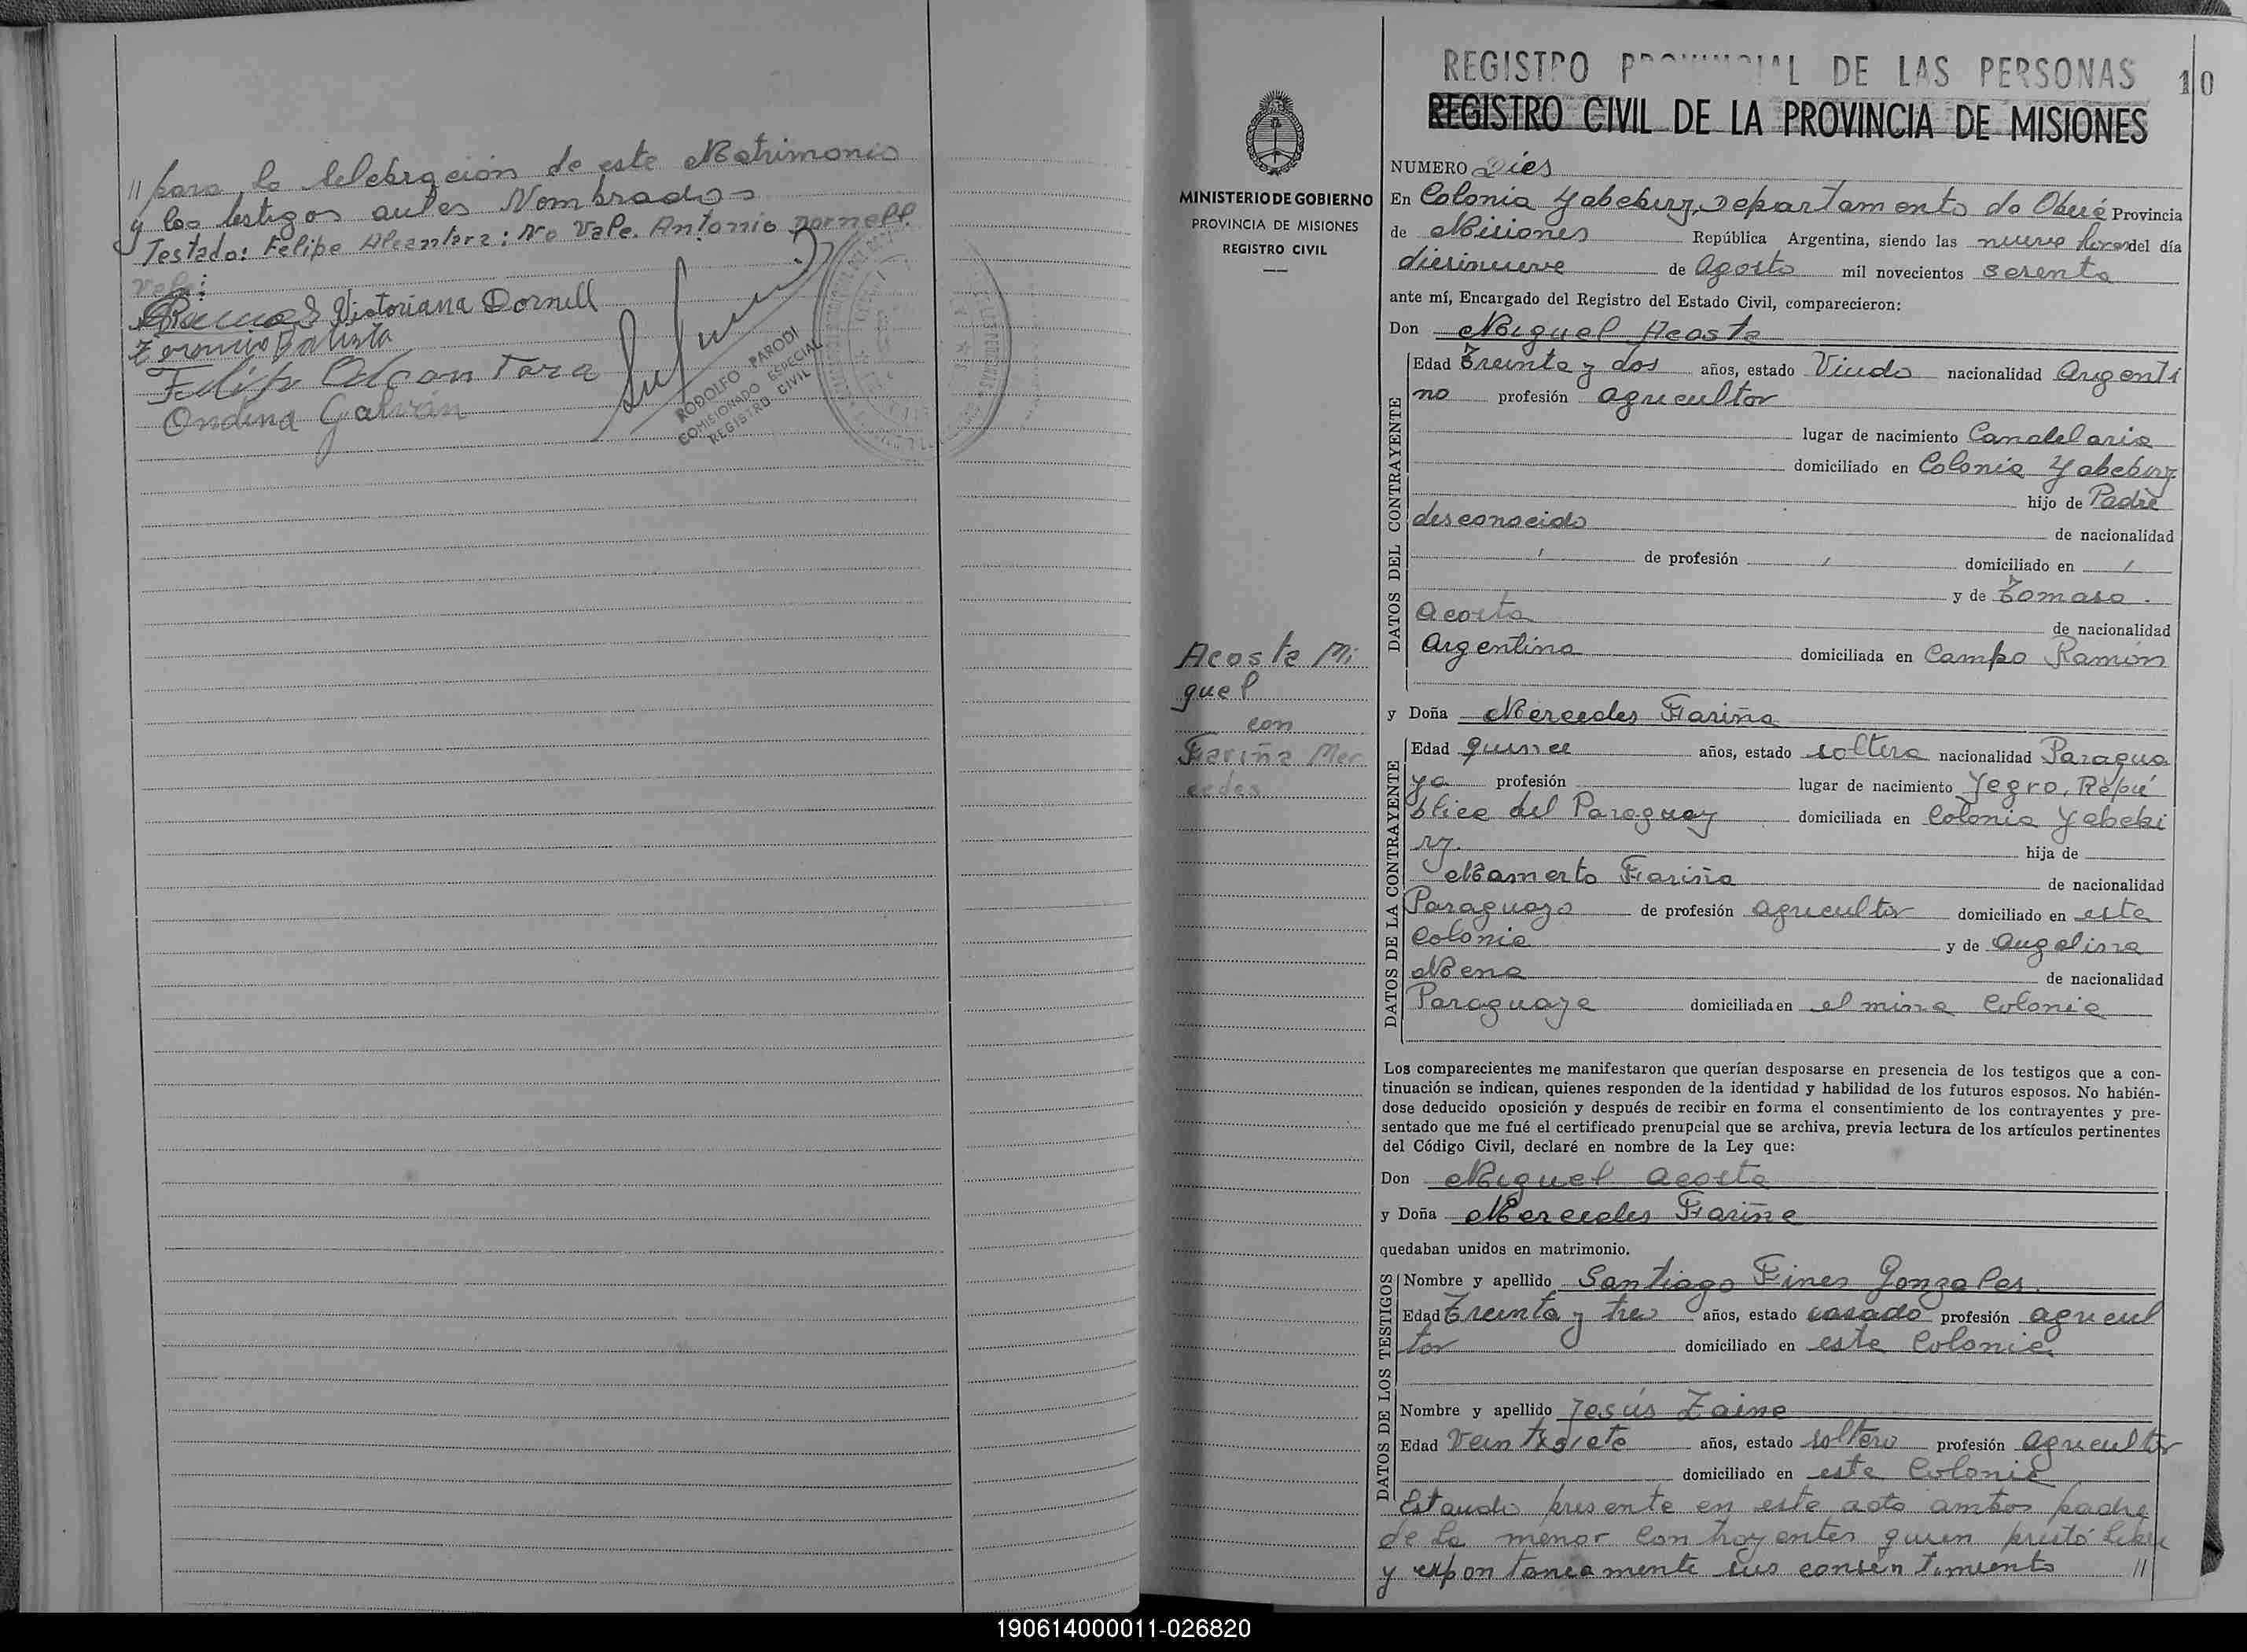 // para la celebración de este Matrimonio
y los testigos antes Nombrados
Testado: Felipe Alcantara: No Vale. Antonio Dornell.
vale:
Victoriana Dornell
Batista
Felipe Alcantara
Ondina Galvan
RODOLFO PARODI
COMISIONADO ESPECIAL
REGISTRO CIVIL
REGISTRO PROVINCIAL DE LAS PERSONAS
10
REGISTRO CIVIL DE LA PROVINCIA DE MISIONES
MINISTERIO DE GOBIERNO
PROVINCIA DE MISIONES
REGISTRO CIVIL
Acosta Mi
guel
con
Fariña Mer
cedes
NUMERO Dies
En Colonia Yabebiry, Departamento de Oberá Provincia
de Misiones República Argentina, siendo las nueve horas del día
diesinueve de Agosto mil novecientos sesenta
ante mí, Encargado del Registro del Estado Civil, comparecieron:
Don Miguel Acosta
DATOS DEL CONTRAYENTE
Edad Treinta y dos años, estado Viudo nacionalidad Argenti
no profesión agricultor
lugar de nacimiento Candelaria
domiciliado en Colonia Yabebiry
hijo de Padre
desconocido de nacionalidad
/ de profesión / domiciliado en /
y de Tomasa
Acosta de nacionalidad
Argentina domiciliada en Campo Ramón
y Doña Mercedes Fariña
DATOS DE LA CONTRAYENTE
Edad quince años, estado soltera nacionalidad Paragua
ya profesión lugar de nacimiento Yegro, Repú
blica del Paraguay domiciliada en Colonia Yabebi
ry. hija de
Mamerto Fariña de nacionalidad
Paraguayo de profesión agricultor domiciliado en esta
Colonia y de Angelina
Mena de nacionalidad
Paraguaya domiciliada en el misma Colonia
Los comparecientes me manifestaron que querían desposarse en presencia de los testigos que a con-
tinuación se indican, quienes responden de la identidad y habilidad de los futuros esposos. No habién-
dose deducido oposición y después de recibir en forma el consentimiento de los contrayentes y pre-
sentado que me fué el certificado prenupcial que se archiva, previa lectura de los artículos pertinentes
del Código Civil, declaré en nombre de la Ley que:
Don Miguel Acosta
y Doña Mercedes Fariña
quedaban unidos en matrimonio.
DATOS DE LOS TESTIGOS
Nombre y apellido Santiago Fines Gonzales.
Edad Treinta y tres años, estado casado profesión agricul
tor domiciliado en esta Colonia
Nombre y apellido Jesús Zaine
Edad Veintisiete años, estado soltero profesión agricultor
domiciliado en esta Colonia
Estando presente en este acto ambos padre
de la menor contrayentes quien prestó libre
y expontaneamente sus consentimiento //
190614000011-026820